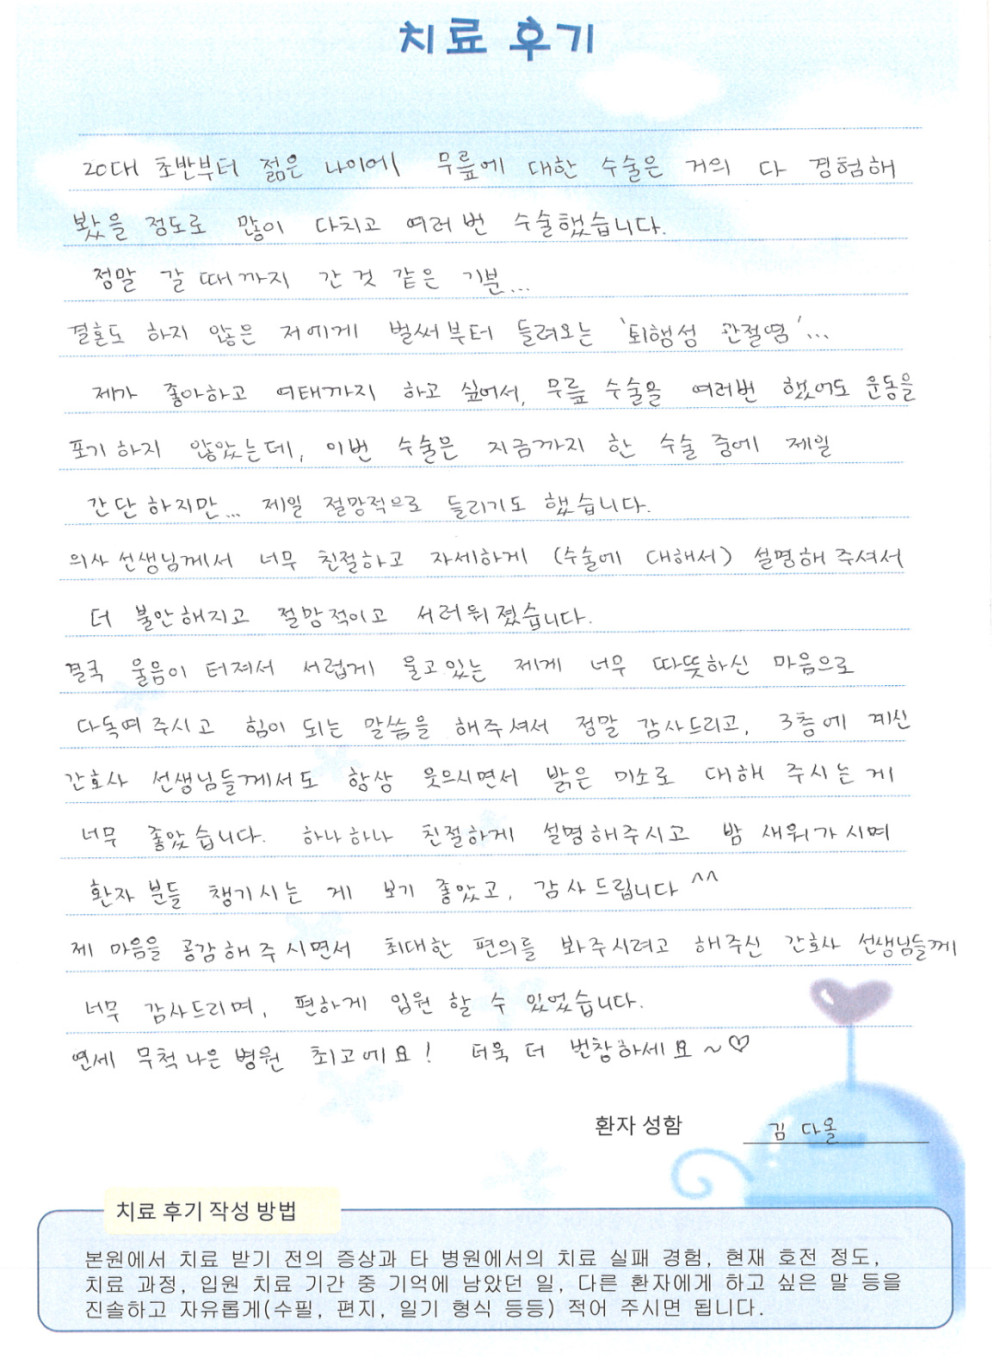 치료 후기
20대 초반부터 젊은 나이에 무릎에 대한 수술은 거의 다 경험해
봤을 정도로 많이 다치고 여러번 수술했습니다.
정말 갈 때까지 간 것 같은 기분...
결혼도 하지 않은 저에게 벌써부터 들려오는 '퇴행성 관절염'...
제가 좋아하고 여태까지 하고 싶어서, 무릎 수술을 여러번 했어도 운동을
포기하지 않았는데, 이번 수술은 지금까지 한 수술 중에 제일
간단하지만... 제일 절망적으로 들리기도 했습니다.
의사 선생님께서 너무 친절하고 자세하게 (수술에 대해서) 설명해 주셔서
더 불안해지고 절망적이고 서러워졌습니다.
결국 울음이 터져서 서럽게 울고있는 제게 너무 따뜻하신 마음으로
다독여 주시고 힘이 되는 말씀을 해주셔서 정말 감사드리고, 3층에 계신
간호사 선생님들께서도 항상 웃으시면서 밝은 미소로 대해 주시는 게
너무 좋았습니다. 하나하나 친절하게 설명해주시고 밤 새워가시며
환자 분들 챙기시는 게 보기 좋았고, 감사드립니다 ^^
제 마음을 공감해 주시면서 최대한 편의를 봐주시려고 해주신 간호사 선생님들께
너무 감사드리며, 편하게 입원 할 수 있었습니다.
연세 무척 나은 병원 최고에요! 더욱 더 번창하세요~♡
환자 성함 김 다올
치료 후기 작성 방법
본원에서 치료 받기 전의 증상과 타 병원에서의 치료 실패 경험, 현재 호전 정도,
치료 과정, 입원 치료 기간 중 기억에 남았던 일, 다른 환자에게 하고 싶은 말 등을
진솔하고 자유롭게(수필, 편지, 일기 형식 등등) 적어 주시면 됩니다.